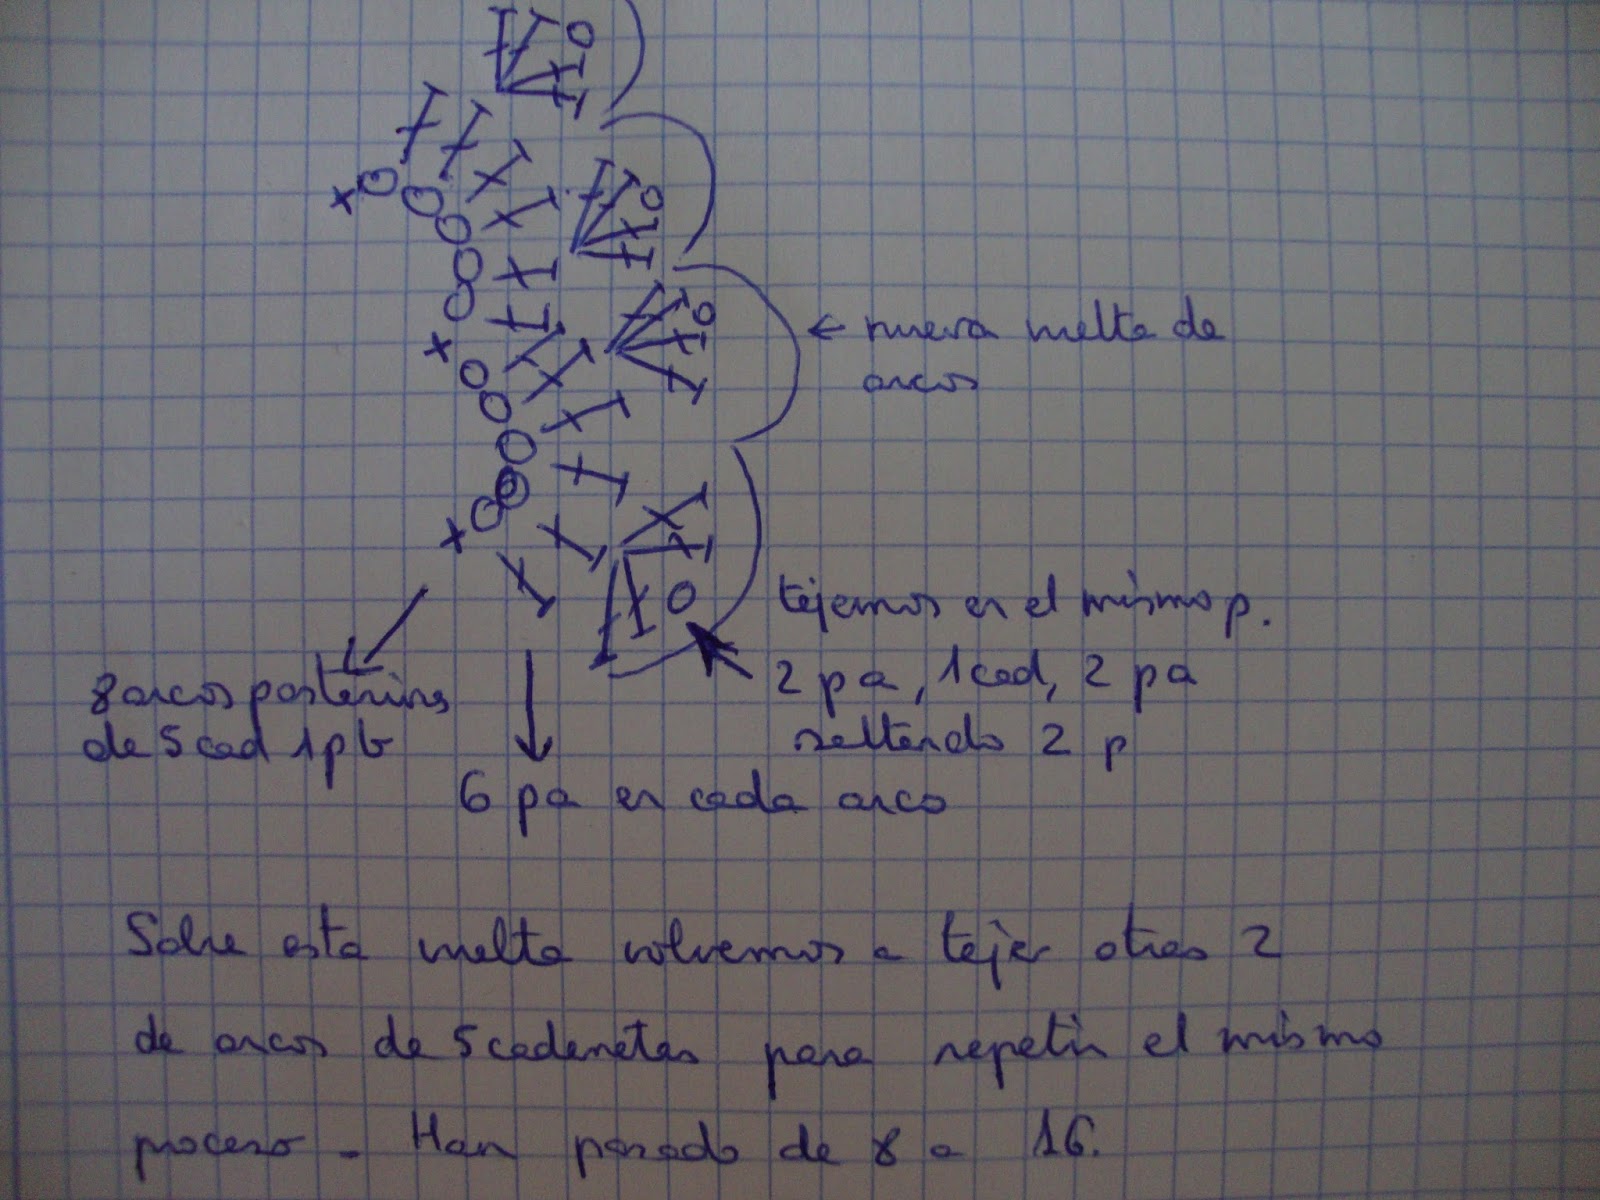 ← nueva vuelta de
arcos
tejemos en el mismo p.
2 pa, 1 cad, 2 pa
saltando 2 p
8 arcos posteriores
de 5 cad 1 pb
6 pa en cada arco
Sobre esta vuelta volvemos a tejer otras 2
de arcos de 5 cadenetas para repetir el mismo
proceso - Han pasado de 8 a 16.